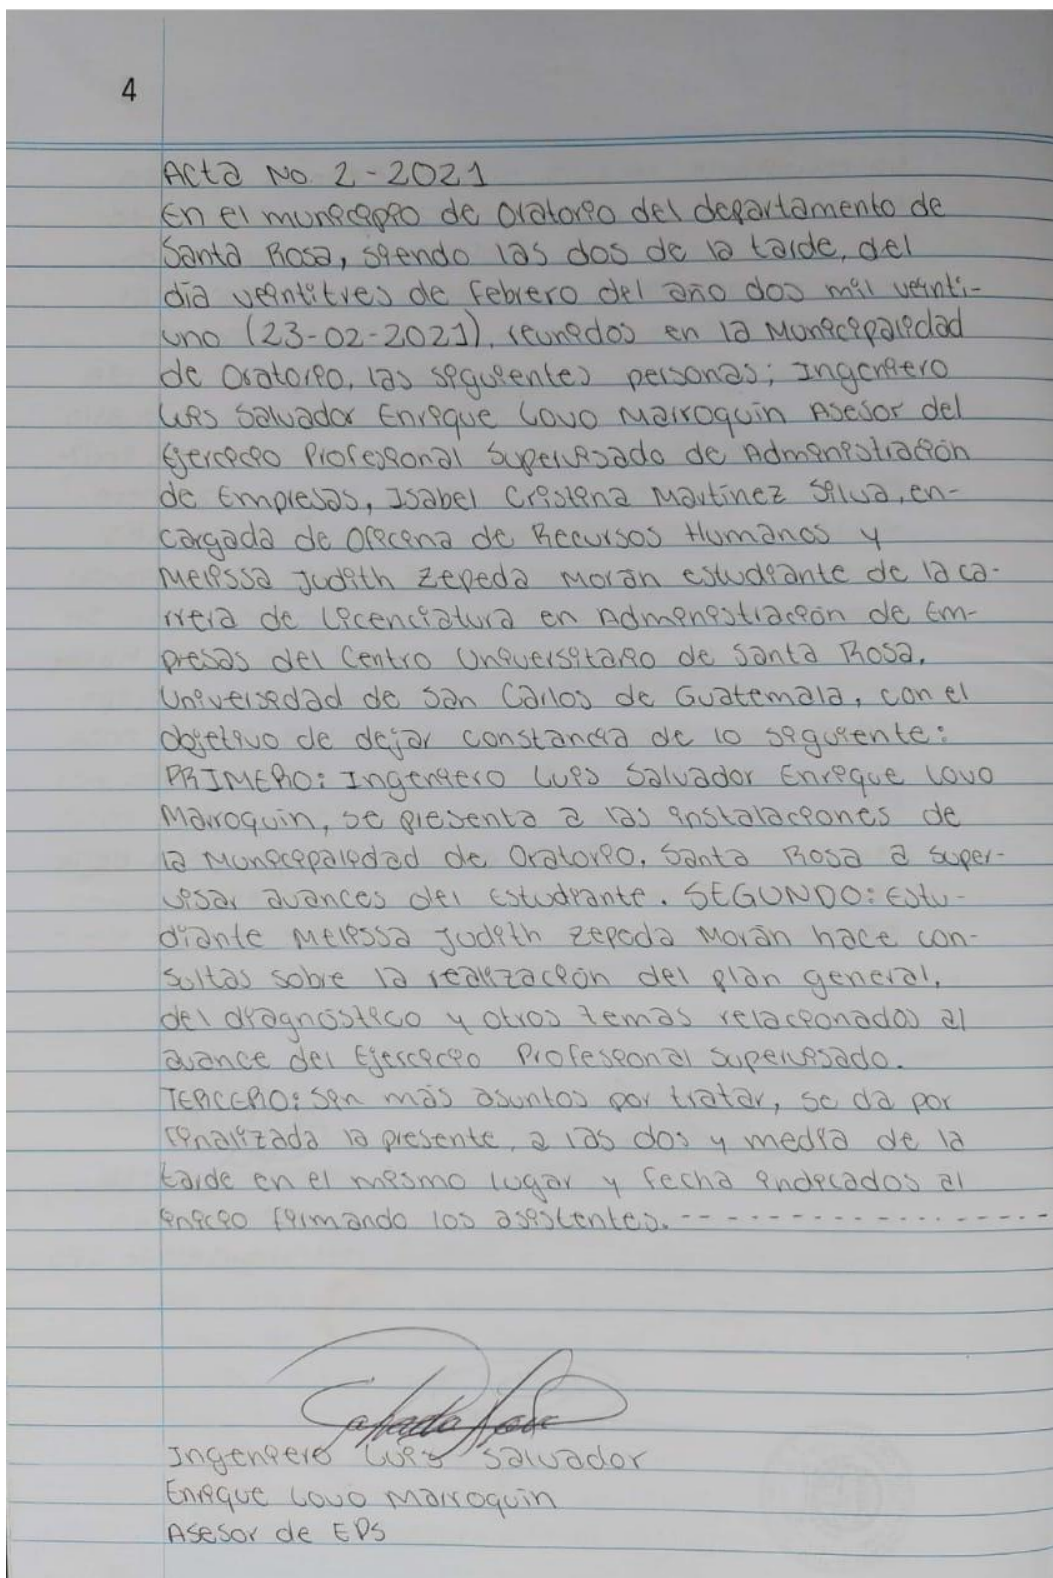 4
Acta No. 2-2021
En el municipio de Oratorio del departamento de
Santa Rosa, siendo las dos de la tarde, del
día veintitres de febrero del año dos mil veinti-
uno (23-02-2021), reunidos en la Municipalidad
de Oratorio, las siguientes personas; Ingeniero
Luis Salvador Enrique Lovo Marroquin Asesor del
Ejercicio Profesional Supervisado de Administración
de Empresas, Isabel Cristina Martínez Silva, en-
cargada de Oficina de Recursos Humanos y
Melissa Judith Zepeda Morán estudiante de la ca-
rrera de Licenciatura en Administración de Em-
presas del Centro Universitario de Santa Rosa,
Universidad de San Carlos de Guatemala, con el
objetivo de dejar constancia de lo siguiente:
PRIMERO: Ingeniero Luis Salvador Enrique Lovo
Marroquin, se presenta a las instalaciones de
la Municipalidad de Oratorio, Santa Rosa a super-
visar avances del Estudiante. SEGUNDO: Estu-
diante Melissa Judith Zepeda Morán hace con-
sultas sobre la realización del plan general,
del diagnóstico y otros temas relacionados al
avance del Ejercicio Profesional Supervisado.
TERCERO: Sin más asuntos por tratar, se da por
finalizada la presente, a las dos y media de la
tarde en el mismo lugar y fecha indicados al
inicio firmando los asistentes. - - - - - - - - - - - - - - - - - -
Ingeniero Luis Salvador
Enrique Lovo Marroquin
Asesor de EPS